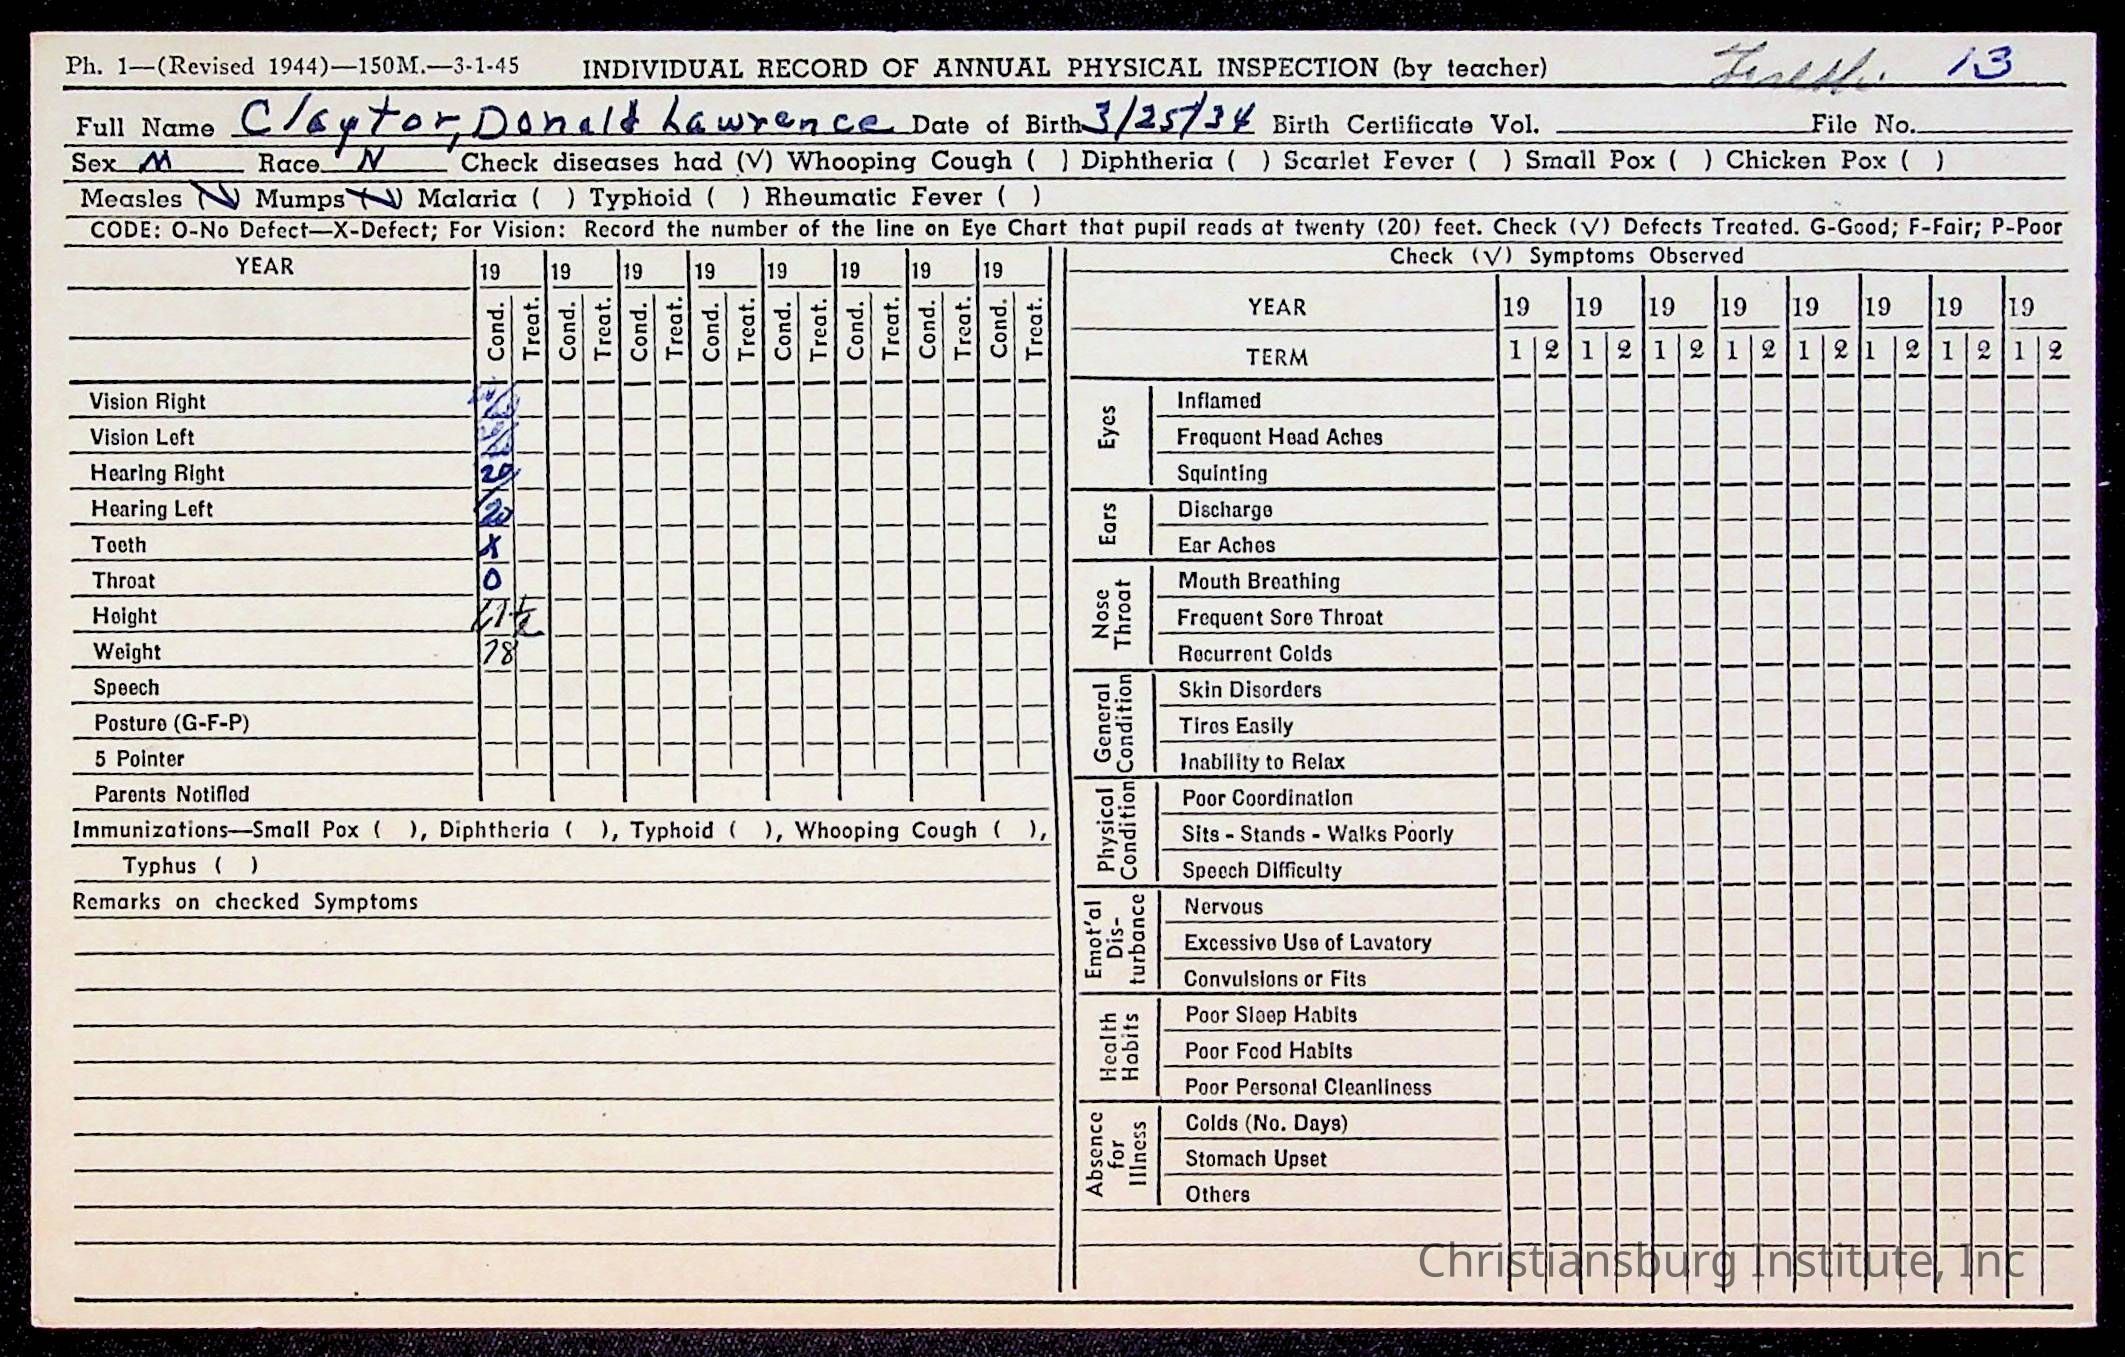 Ph. 1—(Revised 1944)—150M.—3-1-45 INDIVIDUAL RECORD OF ANNUAL PHYSICAL INSPECTION (by teacher) 13
Full Name Claytor, Donald Lawrence Date of Birth 3/25/34 Birth Certificate Vol. File No.
Sex M Race N Check diseases had (√) Whooping Cough ( ) Diphtheria ( ) Scarlet Fever ( ) Small Pox ( ) Chicken Pox ( )
Measles (√) Mumps (√) Malaria ( ) Typhoid ( ) Rheumatic Fever ( )
CODE: O-No Defect—X-Defect; For Vision: Record the number of the line on Eye Chart that pupil reads at twenty (20) feet. Check (√) Defects Treated. G-Good; F-Fair; P-Poor
YEAR 19 19 19 19 19 19 19 19
Cond. Treat. Cond. Treat. Cond. Treat. Cond. Treat. Cond. Treat. Cond. Treat. Cond. Treat. Cond. Treat.
Vision Right
Vision Left
Hearing Right 20
Hearing Left 20
Teeth X
Throat O
Height
Weight 78
Speech
Posture (G-F-P)
5 Pointer
Parents Notified
Immunizations—Small Pox ( ), Diphtheria ( ), Typhoid ( ), Whooping Cough ( ),
Typhus ( )
Remarks on checked Symptoms
Check (√) Symptoms Observed
YEAR 19 19 19 19 19 19 19 19
TERM 1 2 1 2 1 2 1 2 1 2 1 2 1 2 1 2
Eyes
Inflamed
Frequent Head Aches
Squinting
Ears
Discharge
Ear Aches
Nose Throat
Mouth Breathing
Frequent Sore Throat
Recurrent Colds
General Condition
Skin Disorders
Tires Easily
Inability to Relax
Physical Condition
Poor Coordination
Sits - Stands - Walks Poorly
Speech Difficulty
Emot'al Dis-turbance
Nervous
Excessive Use of Lavatory
Convulsions or Fits
Health Habits
Poor Sleep Habits
Poor Food Habits
Poor Personal Cleanliness
Absence for Illness
Colds (No. Days)
Stomach Upset
Others
Christiansburg Institute, Inc